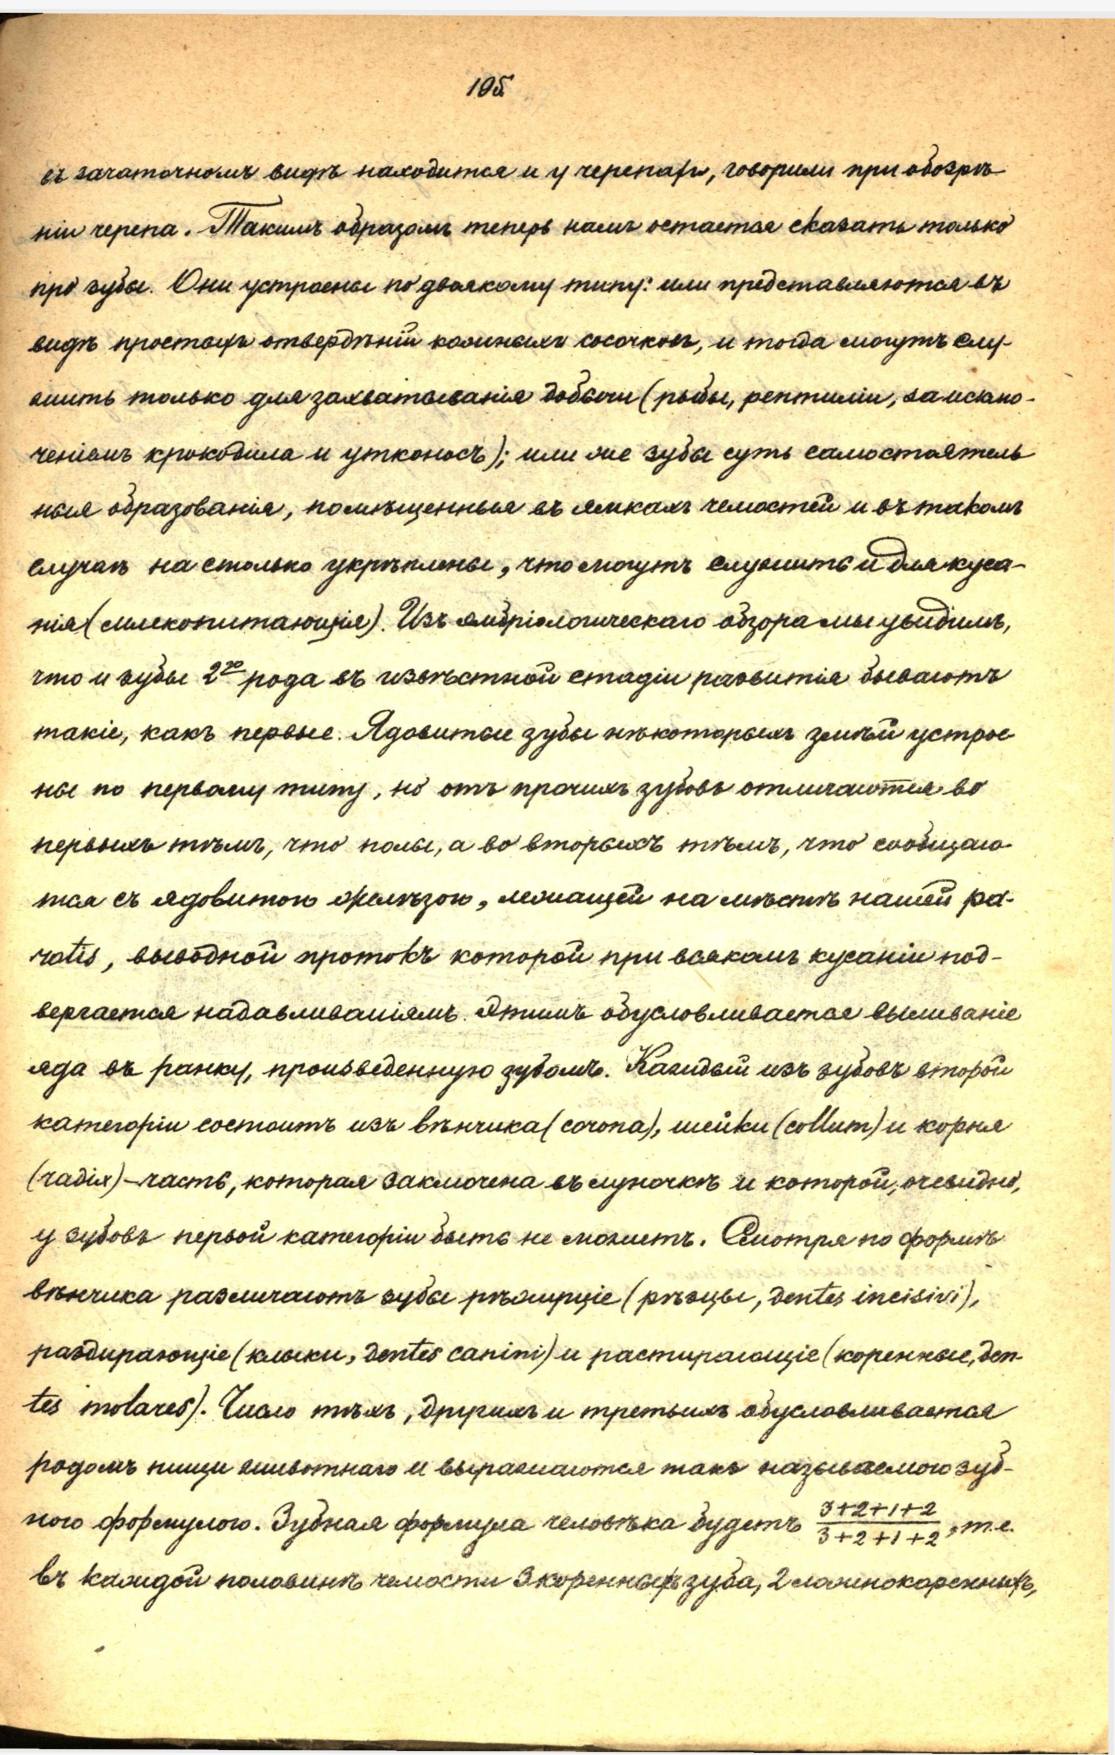 105
въ зачаточномъ видѣ находится и у черепахъ, говорили при обозрѣ
ніи черепа. Такимъ образомъ теперь намъ остается сказать только
про зубы. Они устроены по двоякому типу: или представляются въ
видѣ простыхъ отвердѣній кожныхъ сосочковъ, и тогда могутъ слу-
жить только для захватыванія добычи (рыбы, рептиліи, за исклю-
ченіемъ крокодила и утконосъ); или же зубы суть самостоятель
ныя образованія, помѣщенныя въ ямкахъ челюстей и въ такомъ
случаѣ на столько укрѣплены, что могутъ служить и для куса-
нія (млекопитающія). Изъ эмбріологическаго обзора мы увидимъ,
что и зубы 2го рода въ извѣстной стадіи развитія бываютъ
такіе, какъ первые. Ядовитые зубы нѣкоторыхъ змѣй устрое
ны по первому типу, но отъ прочихъ зубовъ отличаются во
первыхъ тѣмъ, что полы, а во вторыхъ тѣмъ, что сообщаю
тся съ ядовитою железою, лежащей на мѣстѣ нашей pa-
rotis, выводной протокъ которой при всякомъ кусаніи под-
вергается надавливаніямъ. Этимъ обусловливается выливаніе
яда въ ранку, произведенную зубомъ. Каждый изъ зубовъ второй
категоріи состоитъ изъ вѣнчика (corona), шейки (collum) и корня
(radix) - часть, которая заключена въ луночкѣ и которой, очевидно,
у зубовъ первой категоріи быть не можетъ. Смотря по формѣ
вѣнчика различаютъ зубы рѣжущіе (рѣзцы, dentes incisivi),
раздирающіе (клыки, dentes canini) и растирающіе (коренные, den-
tes molares). Число тѣхъ, другихъ и третьихъ обусловливается
родомъ пищи животнаго и выражаются такъ называемою зуб-
ною формулою. Зубная формула человѣка будетъ 3+2+1+2/3+2+1+2, т.е.
въ каждой половинѣ челюсти 3 коренныхъ зуба, 2 ложнокоренныхъ,